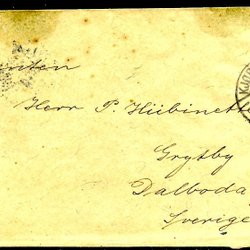 Herr P. Hübinett
Grytby
Dalboda
Sverige